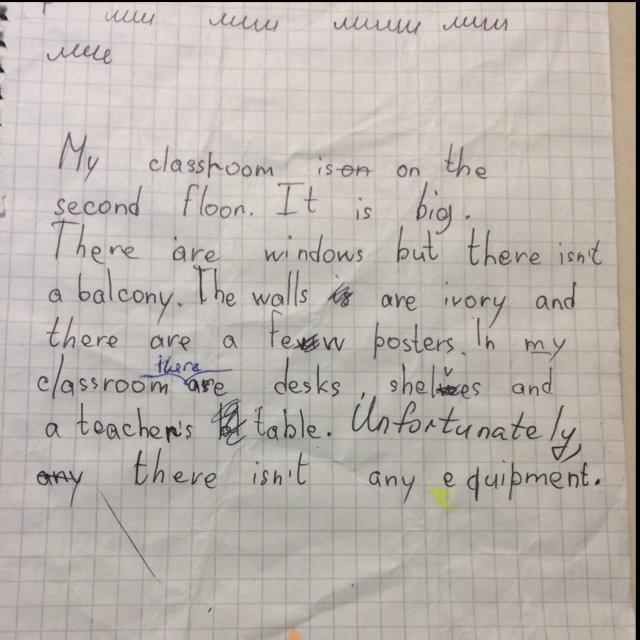 My classroom is on the
second floor. It is big.
There are windows but there isn't
a balcony. The walls are ivory and
there are a few posters. In my
classroom there are desks, shelves and
a teacher's table. Unfortunately,
there isn't any equipment.